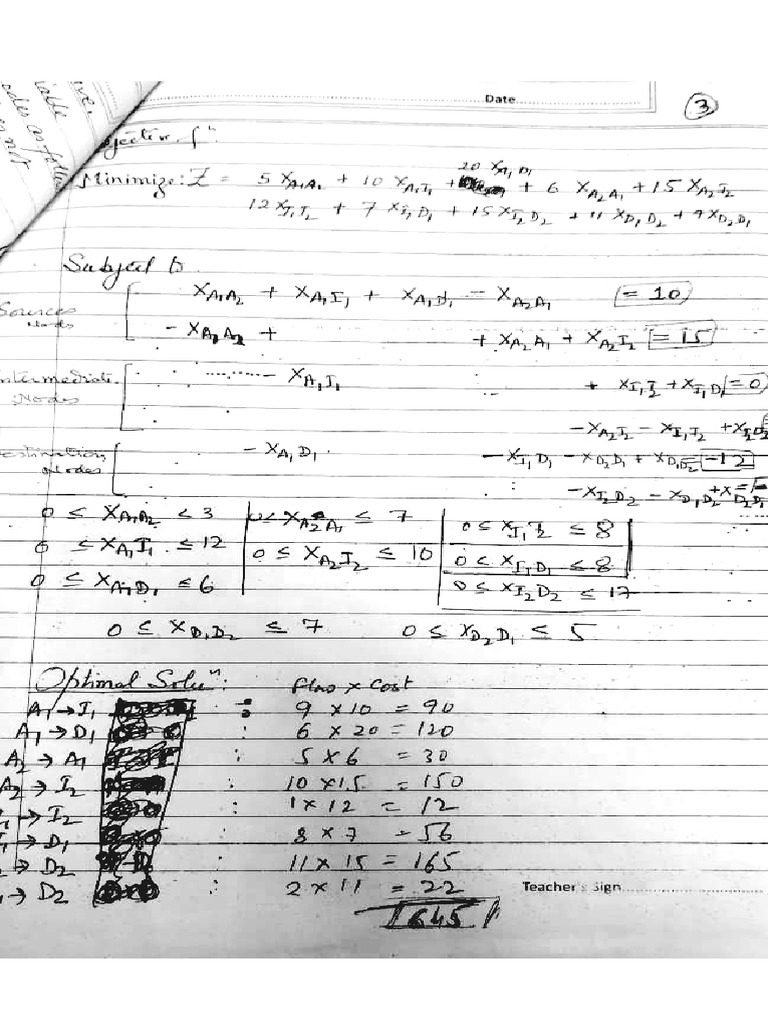 Date
3
Objective fⁿ
Minimize: Z = 5 X_{A1A2} + 10 X_{A1I1} + 20 X_{A1D1} + 6 X_{A2A1} + 15 X_{A2I2}
12 X_{I1I2} + 7 X_{I1D1} + 15 X_{I2D2} + 11 X_{D1D2} + 9 X_{D2D1}
Subject to
Sources Nodes
X_{A1A2} + X_{A1I1} + X_{A1D1} - X_{A2A1} = 10
- X_{A1A2} + + X_{A2A1} + X_{A2I2} = 15
Intermediate Nodes
- X_{A1I1} + X_{I1I2} + X_{I1D1} = 0
- X_{A2I2} - X_{I1I2} + X_{I2D2}
Destination Nodes
- X_{A1D1} - X_{I1D1} - X_{D2D1} + X_{D1D2} = -12
- X_{I2D2} - X_{D1D2} + X_{D2D1}
0 ≤ X_{A1A2} ≤ 3 0 ≤ X_{A2A1} ≤ 7 0 ≤ X_{I1I2} ≤ 8
0 ≤ X_{A1I1} ≤ 12 0 ≤ X_{A2I2} ≤ 10 0 ≤ X_{I1D1} ≤ 8
0 ≤ X_{A1D1} ≤ 6 0 ≤ X_{I2D2} ≤ 17
0 ≤ X_{D1D2} ≤ 7 0 ≤ X_{D2D1} ≤ 5
Optimal Soluⁿ: Flow × Cost
A1 → I1 : 9 × 10 = 90
A1 → D1 : 6 × 20 = 120
A2 → A1 : 5 × 6 = 30
A2 → I2 : 10 × 15 = 150
→ I2 : 1 × 12 = 12
→ D1 : 8 × 7 = 56
→ D2 : 11 × 15 = 165
→ D2 : 2 × 11 = 22
Teacher's Sign
645